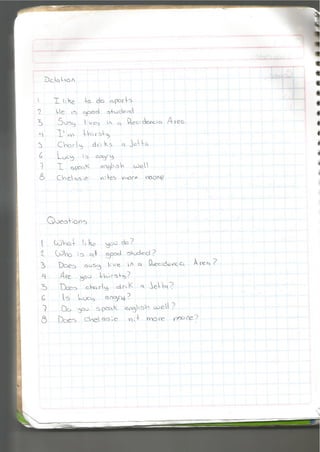 Dictation
1 I like to do sports
2 He is good studend
3 Susy lives in a Recidencia Area
4 I'm thirsty
5 Charly driks a Jelta
6 Lucy is angry
7 I speak english well
8 Chelssie nites more
Questions
1 What like you do?
2 Who is at good studed?
3 Does susy live in a Recidencia Area?
4 Are you thirsty?
5 Does charly drik a Jelty?
6 Is Lucy angry?
7 Do you speak english well?
8 Does Chelssie nit more